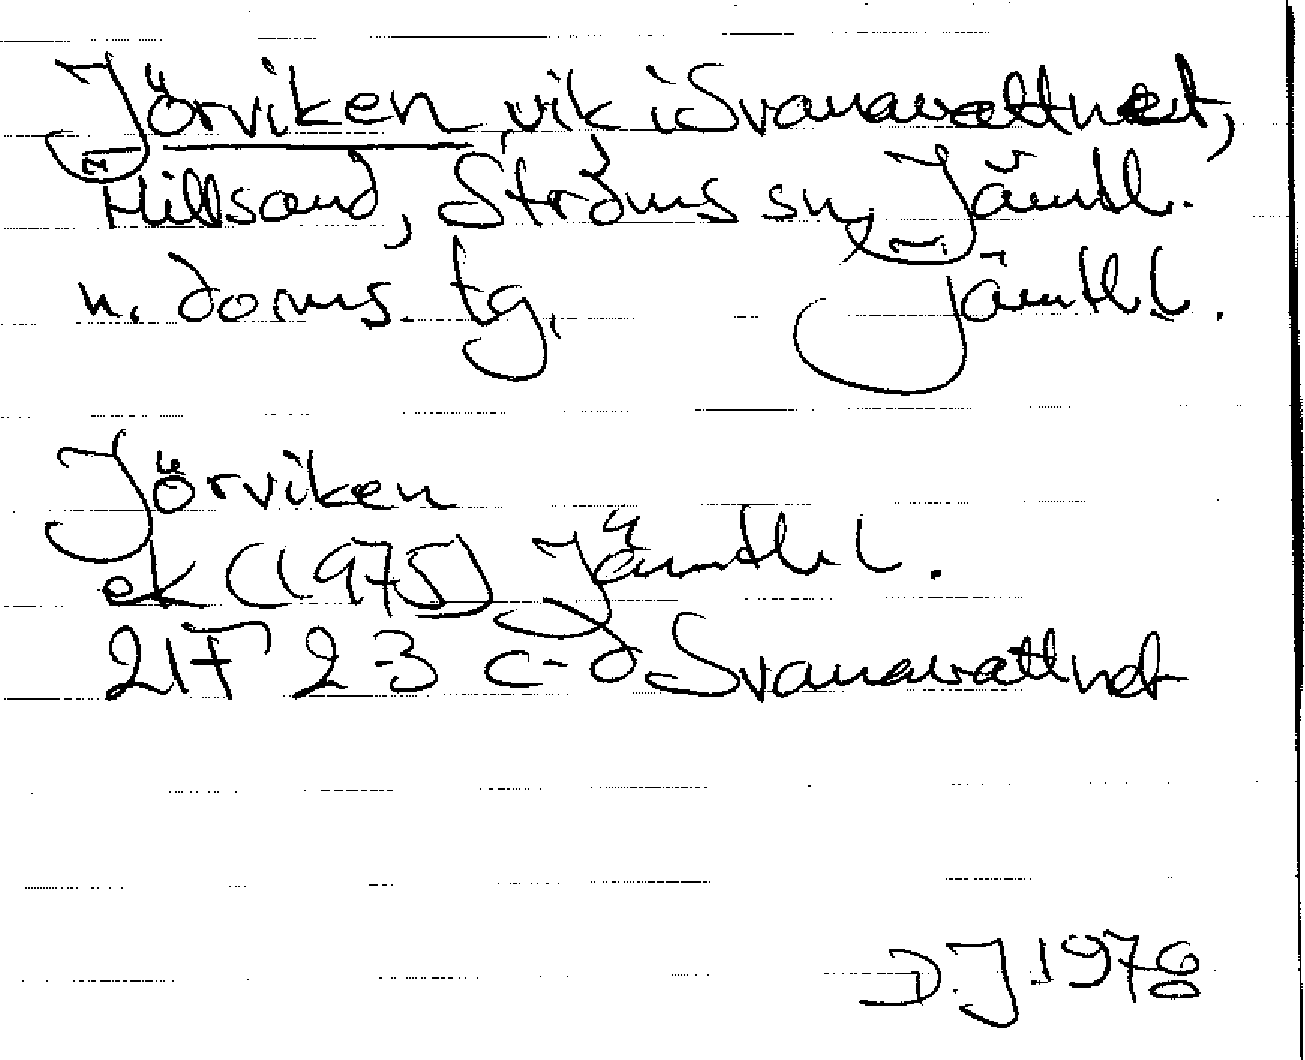 Jörviken, vik i Svanavattnet,
Hillsand, Ströms sn, Jämtl.
n. doms. tg, Jämtl l.
Jörviken
ek (1975) Jämtl. l.
21F 2-3 c-d Svanavattnet
D.J. 1978